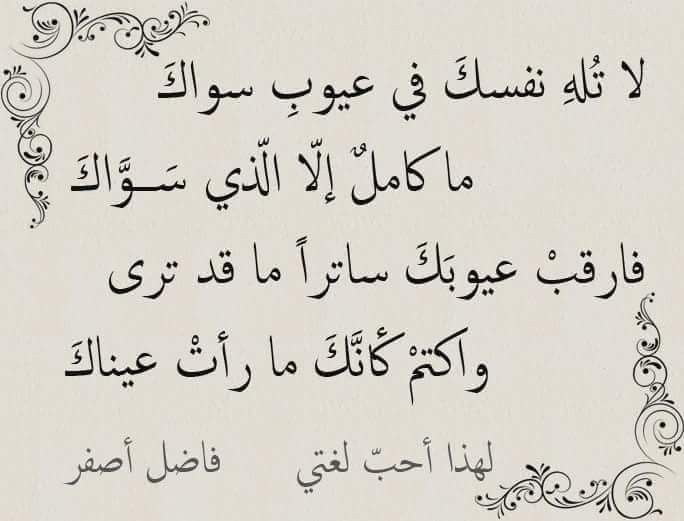 لا تُلهِ نفسكَ في عيوبِ سواكَ
ما كاملٌ إلّا الّذي سَـــوَّاكَ
فارقبْ عيوبَكَ ساتراً ما قد ترى
واكتمْ كأنَّكَ ما رأتْ عيناكَ
لهذا أحبّ لغتي فاضل أصفر